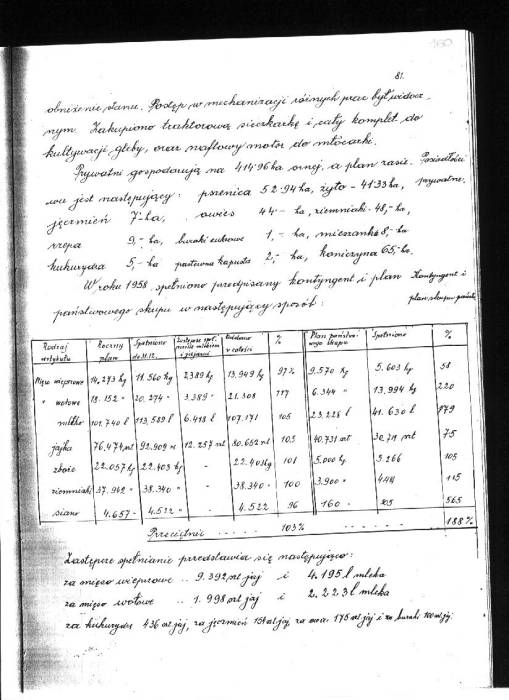 100
81.
obniżenie stanu. Postęp w mechanizacji różnych prac był widocz-
nym. Zakupiono traktorową sieczkarkę i cały komplet do
kultywacji gleby, oraz naftowy motor do młócarki.
Prywatni gospodarują na 414.96 ha ornej, a plan zasie- Posiadłości
wu jest następujący: pszenica 52.94 ha, żyto - 41.33 ha, prywatne.
jęczmień 7-ha, owies 44 - ha, ziemniaki - 48,- ha,
rzepa 9,- ha, buraki cukrowe 1,- ha, mieszanka 8,- ha
kukurydza 5,- ha pastewna kapusta 2,- ha, koniczyna 65,- ha.
W roku 1958 spełniono przedpisany kontyngent i plan Kontyngent i
państwowego skupu w następujący sposób: plan skupu
Rodzaj artykułu Roczny plan Spełniono do 31.12. Zastępcze speł- nienie mlekiem i jajami Oddano w całości % Plan państwo- wego skupu Spełniono %
Mięso wieprzowe 14.273 kg 11.560 kg 2389 kg 13.949 kg 97% 9.570 kg 5.603 kg 58
" wołowe 18.152 " 20.274 " 3.389 " 21.308 117 6.344 " 13.994 kg 220
mleko 101.740 l 113.589 l 6.418 l 107.171 105 23.228 l 41.630 l 179
jajka 76.474 szt 92.909 sz 12.257 szt 80.652 szt 105 40.731 szt 30.711 szt 75
zboże 22.057 kg 22.403 kg - 22.403 kg 101 5.000 kg 5.266 105
ziemniaki 37.942 " 38.340 " - 38.340 " 100 3.900 " 115
siano 4.657 - 4.522 " - 4.522 96 160 905 565
Przeciętnie . . . . . 103% . . . . . 188%
Zastępcze spełnianie przedstawia się następująco:
za mięso wieprzowe .. 9.392 szt jaj i 4.195 l mleka
za mięso wołowe .. 1.998 szt jaj i 2.223 l mleka
za kukurydzę 436 szt jaj, za jęczmień 151 szt jaj, za owies 175 szt jaj i za buraki 100 szt jaj.